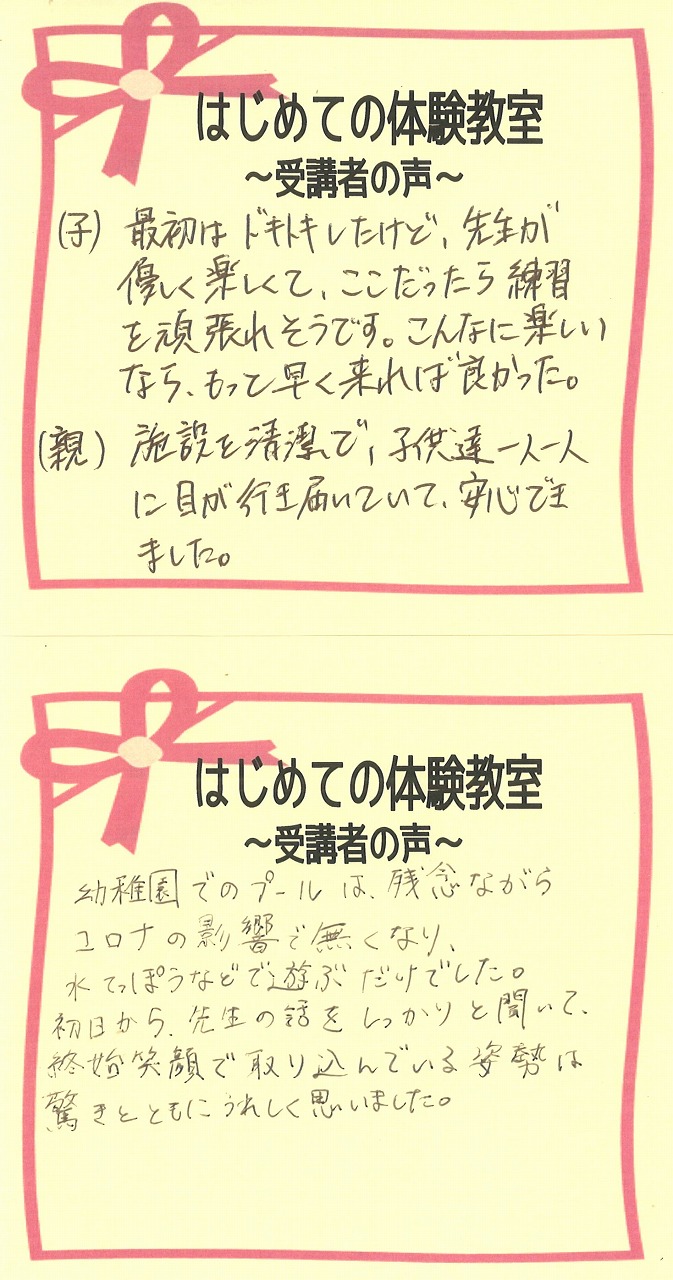 はじめての体験教室
～受講者の声～
(子) 最初はドキドキしたけど、先生が
優しく楽しくて、ここだったら練習
を頑張れそうです。こんなに楽しい
なら、もっと早く来れば良かった。
(親) 施設も清潔で、子供達一人一人
に目が行き届いていて、安心でき
ました。
はじめての体験教室
～受講者の声～
幼稚園でのプールは、残念ながら
コロナの影響で無くなり、
水てっぽうなどで遊ぶだけでした。
初日から、先生の話をしっかりと聞いて、
終始笑顔で取り込んでいる姿勢は
驚きとともにうれしく思いました。